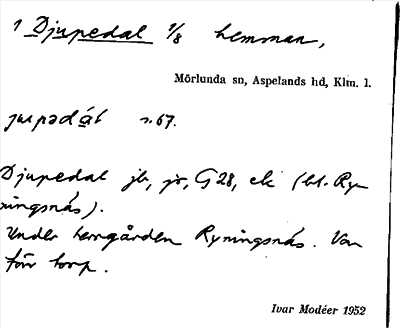 1 Djupedal 1/8 hemman,
Mörlunda sn, Aspelands hd, Klm. l.
jupədát s. 67.
Djupedal jb, jr, G 28, ek (bl. Ry-
ningsnäs).
Under herrgården Ryningsnäs. Var
förr torp.
Ivar Modéer 1952